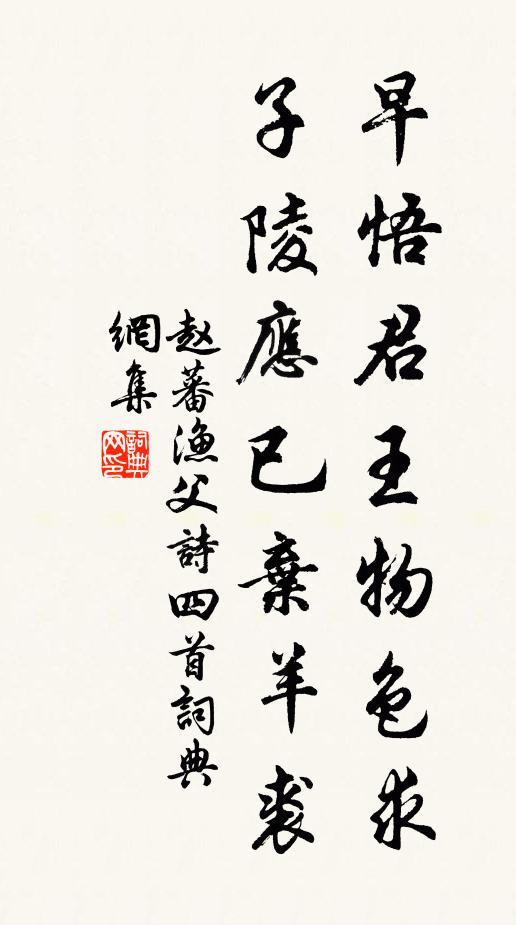 早悟君王物色求
子陵應已棄羊裘
赵蕃漁父詩四首詞典
網集
詞典網印